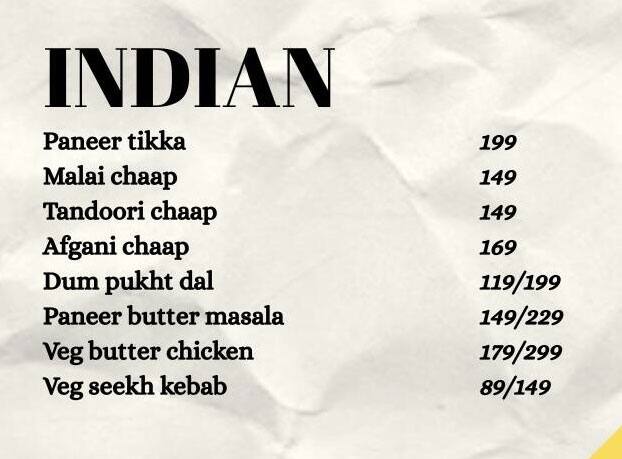 INDIAN
Paneer tikka 199
Malai chaap 149
Tandoori chaap 149
Afgani chaap 169
Dum pukht dal 119/199
Paneer butter masala 149/229
Veg butter chicken 179/299
Veg seekh kebab 89/149